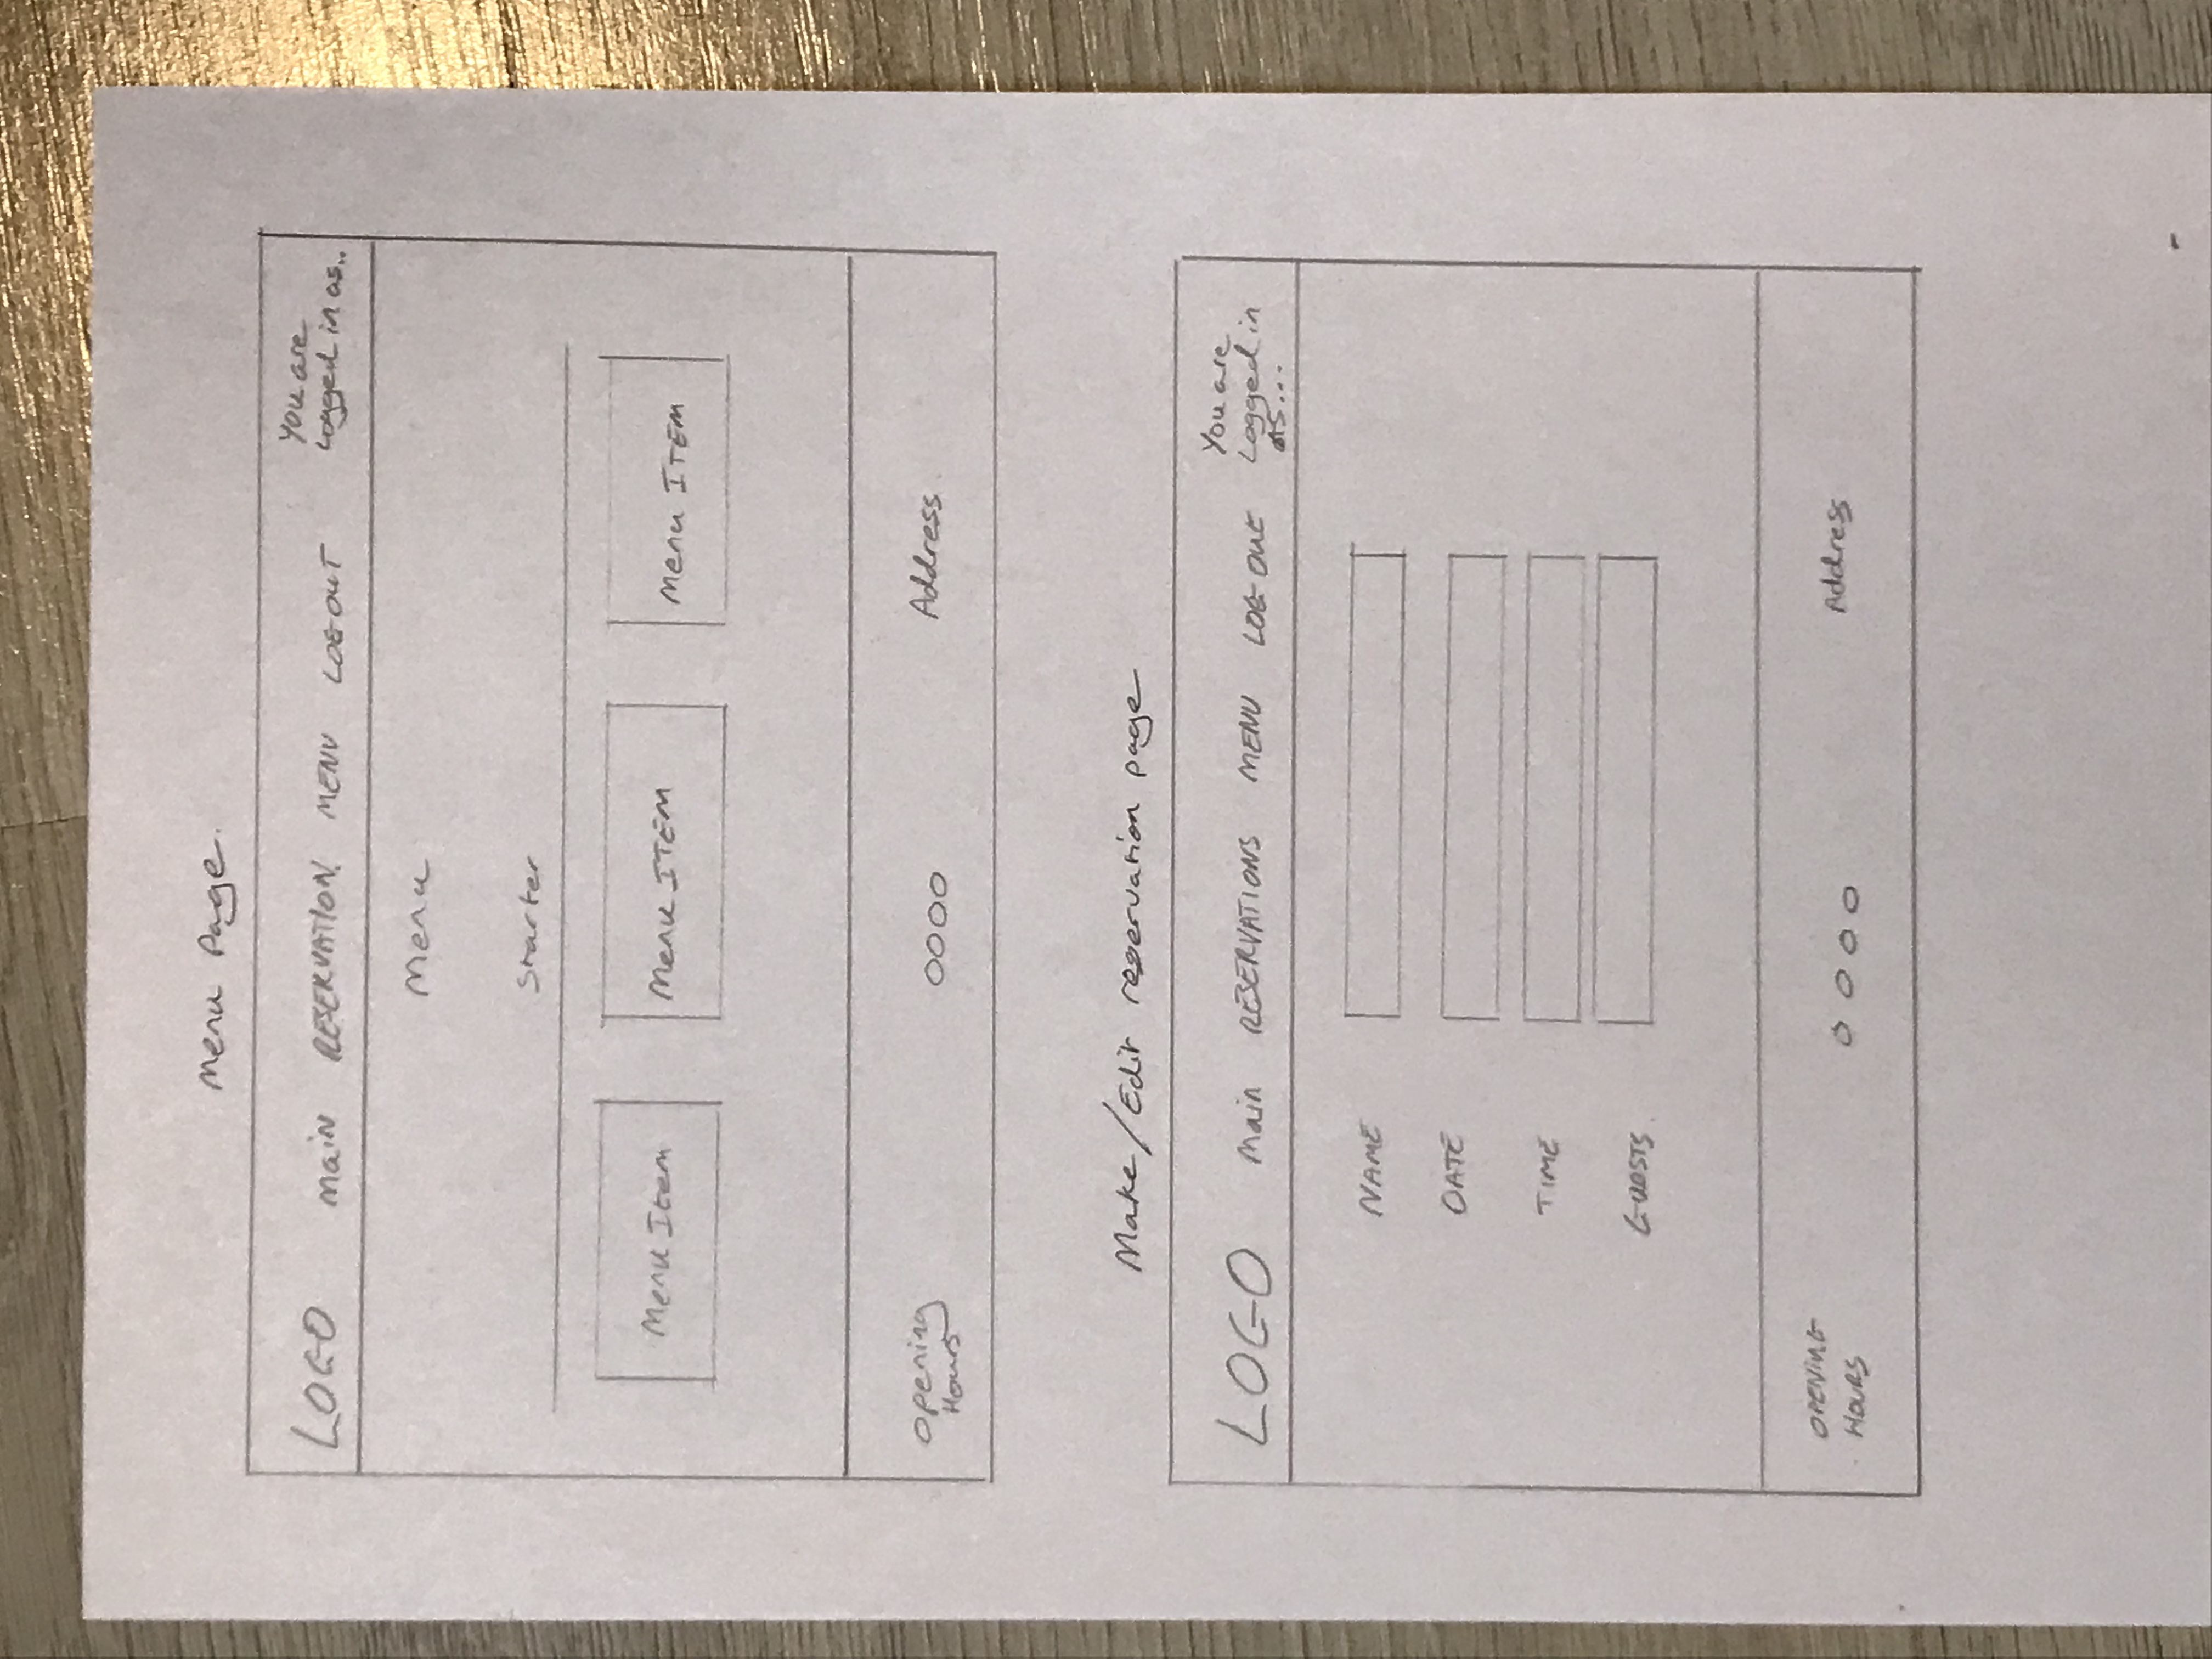 Menu Page.
LOGO main RESERVATION. MENU LOGOUT You are
Logged in as..
Menu
Starter
Menu Item Menu ITEM Menu ITEM
Opening
Hours
Address
Make/Edit reservation page
LOGO Main RESERVATIONS MENU LOG OUT You are
Logged in
as...
NAME
DATE
TIME
GUESTS
OPENING
HOURS
Address